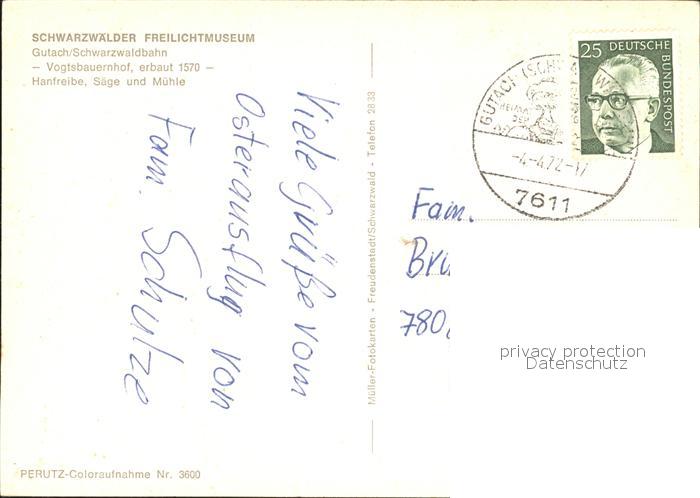 SCHWARZWÄLDER FREILICHTMUSEUM
Gutach/Schwarzwaldbahn
– Vogtsbauernhof, erbaut 1570 –
Hanfreibe, Säge und Mühle
Viele Grüße vom
Osterausflug von
Fam. Schulze
PERUTZ-Coloraufnahme Nr. 3600
Müller-Fotokarten - Freudenstadt/Schwarzwald - Telefon 2833
25 DEUTSCHE
BUNDESPOST
GUTACH (SCHWARZW
HEIMAT
DER
-4-4.72-17
7611
Fam.
780
privacy protection
Datenschutz